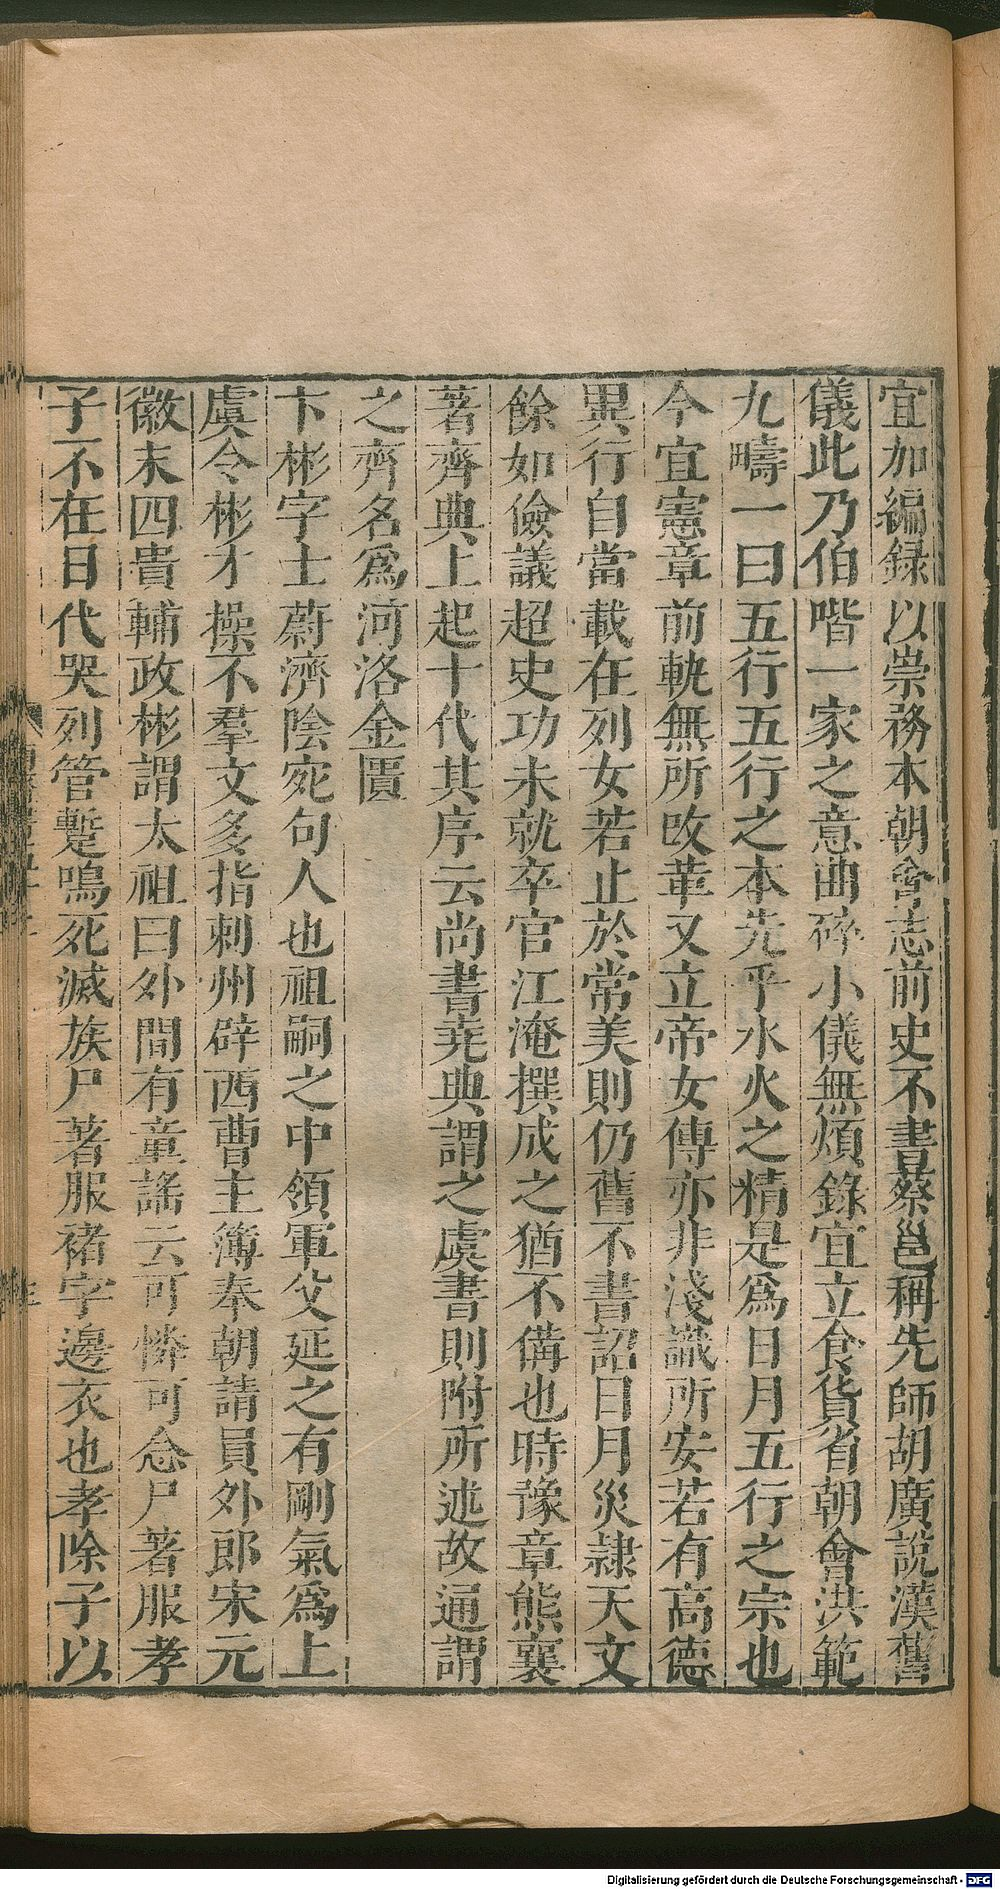 宜加編録以崇務本朝會志前史不書蔡邕稱先師胡廣說漢舊
儀此乃伯喈一家之意曲碎小儀無煩錄宜立食貨省朝會洪範
九疇一曰五行五行之本先乎水火之精是爲日月五行之宗也
今宜憲章前軌無所改革又立帝女傳亦非淺識所安若有高德
異行自當載在列女若止於常美則仍舊不書詔日月災隷天文
餘如儉議超史功未就卒官江淹撰成之猶不備也時豫章熊襄
著齊典上起十代其序云尚書堯典謂之虞書則附所述故通謂
之齊名爲河洛金匱
卞彬字士蔚濟陰宛句人也祖嗣之中領軍父延之有剛氣爲上
虞令彬才操不羣文多指刺州辟西曹主簿奉朝請員外郎宋元
徽末四貴輔政彬謂太祖曰外間有童謠云可憐可念尸著服孝
子不在日代哭列管蹔鳴死滅族尸著服褚字邊衣也孝除子以
Digitalisierung gefördert durch die Deutsche Forschungsgemeinschaft - DFG